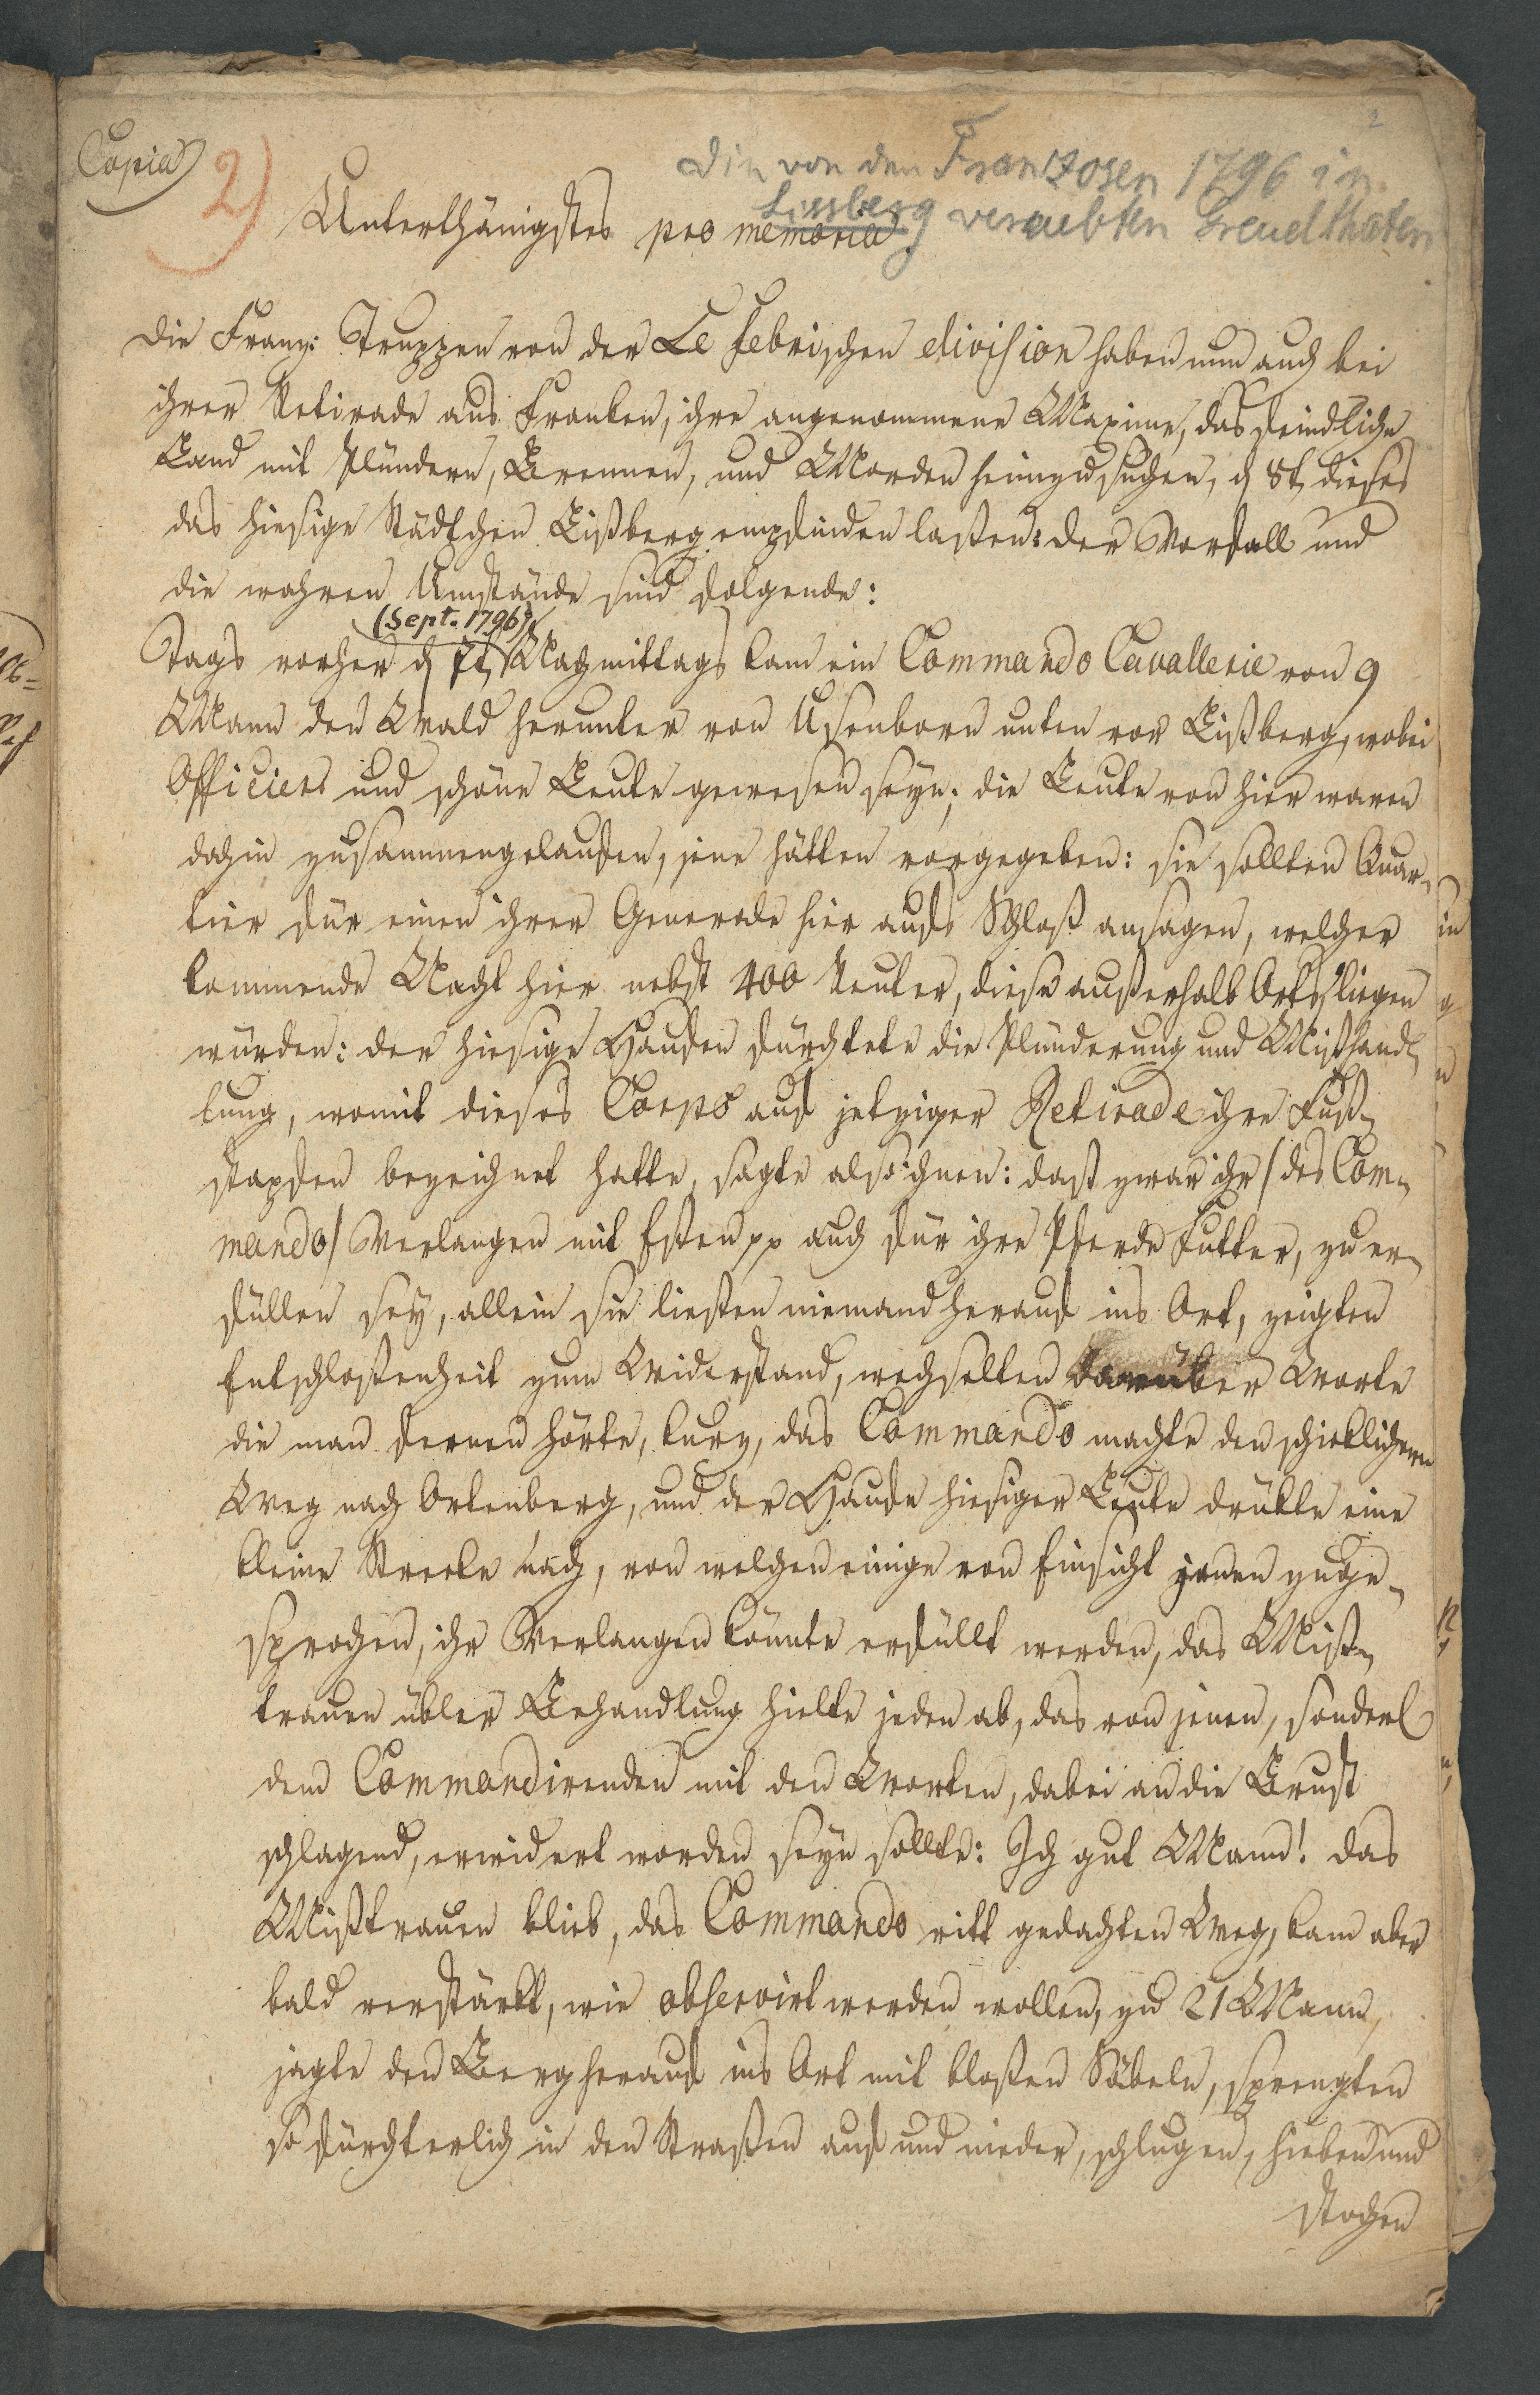 Copia
2)
2
Die von den Frantzosen 1796 in
Lissberg veruebten Greuelthaten
Unterthänigstes pro memoria.
Die Franz: Truppen von der Le febrischen division haben nun auch bei
ihrer Retirade aus Franken, ihre angenommene Maxime, das feindliche
Land mit Plündern, Brennen, und Morden heimzusuchen, d 8t. dieses
das hiesige Städtchen Lißberg empfinden laßen: der Vorfall und
die wahren Umstände sind folgende:
(Sept. 1796)
Tags vorher d 7t. Nachmittags kam ein Commando Cavallerie von 9
Mann den Wald herunter von Usenborn unten vor Lißberg, wobei
Officiers und schöne Leute gewesen seyn; die Leute von hier waren
dahin zusammengelaufen, jene hätten vorgegeben: sie sollten Quar-
tier für einen ihrer Generale hier aufs Schloß ansagen, welcher
kommende Nacht hier nebst 400 Reuter, diese außerhalb Orts, liegen
würden: der hiesige Haufen fürchtete die Plünderung und Mißhand-
lung, womit dieses Corps auf jetziger Retirade ihre Fuß-
stapfen bezeichnet hatte, sagte also ihnen: daß zwar ihr /des Com-
mando/ Verlangen mit Eßen pp auch für ihre Pferde Futter, zu er-
füllen sey, allein sie ließen niemand herauf ins Ort, zeigten
Entschloßenheit zum Widerstand, wechselten darüber Worte
die man fernen hörte, kurz, das Commando machte den schicklichern
Weg nach Ortenberg, und der Haufe hiesiger Leute drükte eine
kleine Strecke nach, von welchen einige von Einsicht jenen zuge-
sprochen, ihr Verlangen könnte erfüllt werden, das Miß-
trauen übler Behandlung hielte jeden ab, das von jenen, sonderl
dem Commandirenden mit den Worten, dabei an die Brust
schlagend, erwidert worden seyn sollte: Ich gut Mann! das
Mißtrauen blieb, das Commando ritt gedachten Weg, kam aber
bald verstärkt, wie observirt werden wollen, zu 21 Mann,
jagte den Berg herauf ins Ort mit bloßen Säbeln, sprengten
so fürchterlich in den Straßen auf und nieder, schlugen, hieben und
stochen